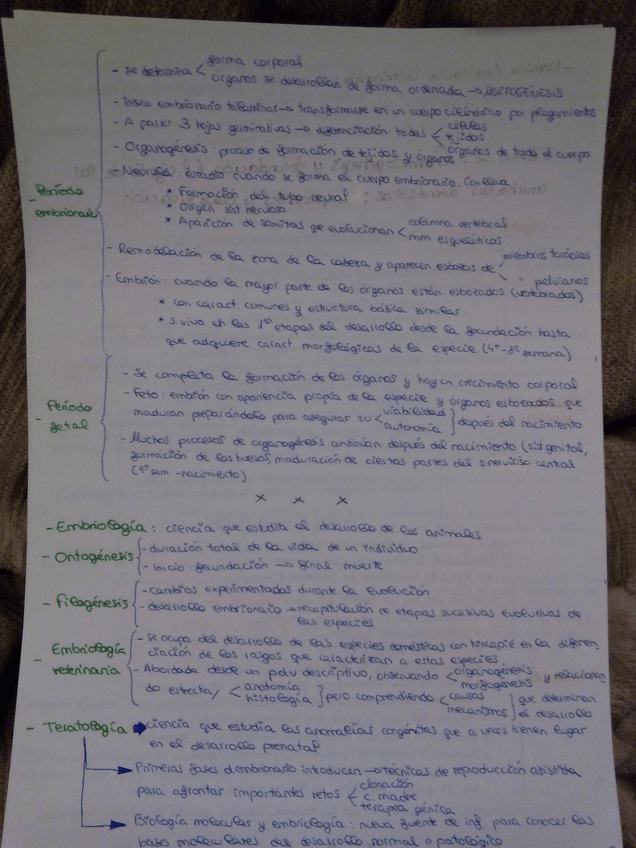 - Se determina < forma corporal
órganos se desarrollan de forma ordenada → MORFOGÉNESIS
- Disco embrionario trilaminar → transformarse en un cuerpo cilíndrico por plegamientos
- A partir 3 hojas germinativas → diferenciación todas < células
tejidos
órganos de todo el cuerpo
- Organogénesis: proceso de formación de tejidos y órganos
- Neurula: estadio cuando se forma el cuerpo embrionario. Conlleva:
* Formación del tubo neural
* Origen sist. nervioso
* Aparición de somitas que evolucionan < columna vertebral
mm esqueléticas
- Período embrionario
- Remodelación de la zona de la cabeza y aparecen esbozos de < miembros torácicos
" pelvianos
- Embrión: cuando la mayor parte de los órganos están esbozados (vertebrados)
* con caract. comunes y estructura básica similar
* s. vivo en las 1ªs etapas del desarrollo desde la fecundación hasta
que adquiere caract. morfológicas de la especie (4ª-8ª semana)
- Período fetal
- Se completa la formación de los órganos y hay un crecimiento corporal
- Feto: embrión con apariencia propia de la especie y órganos esbozados que
maduran preparándolo para asegurar su < viabilidad
autonomía } después del nacimiento
- Muchos procesos de organogénesis continúan después del nacimiento (sist genital,
formación de los huesos, maduración de ciertas partes del s. nervioso central
(9ª sem - nacimiento)
x x x
- Embriología: ciencia que estudia el desarrollo de los animales
- Ontogénesis { - duración total de la vida de un individuo
- Inicio: fecundación → final: muerte
- Filogénesis { - cambios experimentados durante la evolución
- desarrollo embrionario → recapitulación de etapas sucesivas evolutivas de
las especies
- Embriología veterinaria { - se ocupa del desarrollo de las especies domésticas con hincapié en la diferen-
ciación de los rasgos que caracterizan a estas especies.
- Abordada desde un pdv descriptivo, observando < organogénesis
morfogénesis y relacionan-
do estrecha/ < anatomía
histología } pero comprendiendo < causas
mecanismos } que determinan
el desarrollo
- Teratología → ciencia que estudia las anomalías congénitas que a veces tienen lugar
en el desarrollo prenatal
Primeras fases d.embrionario introducen → técnicas de reproducción asistida
para afrontar importantes retos < clonación
c. madre
terapia génica
Biología molecular y embriología: nueva fuente de inf. para conocer las
bases moleculares del desarrollo normal o patológico